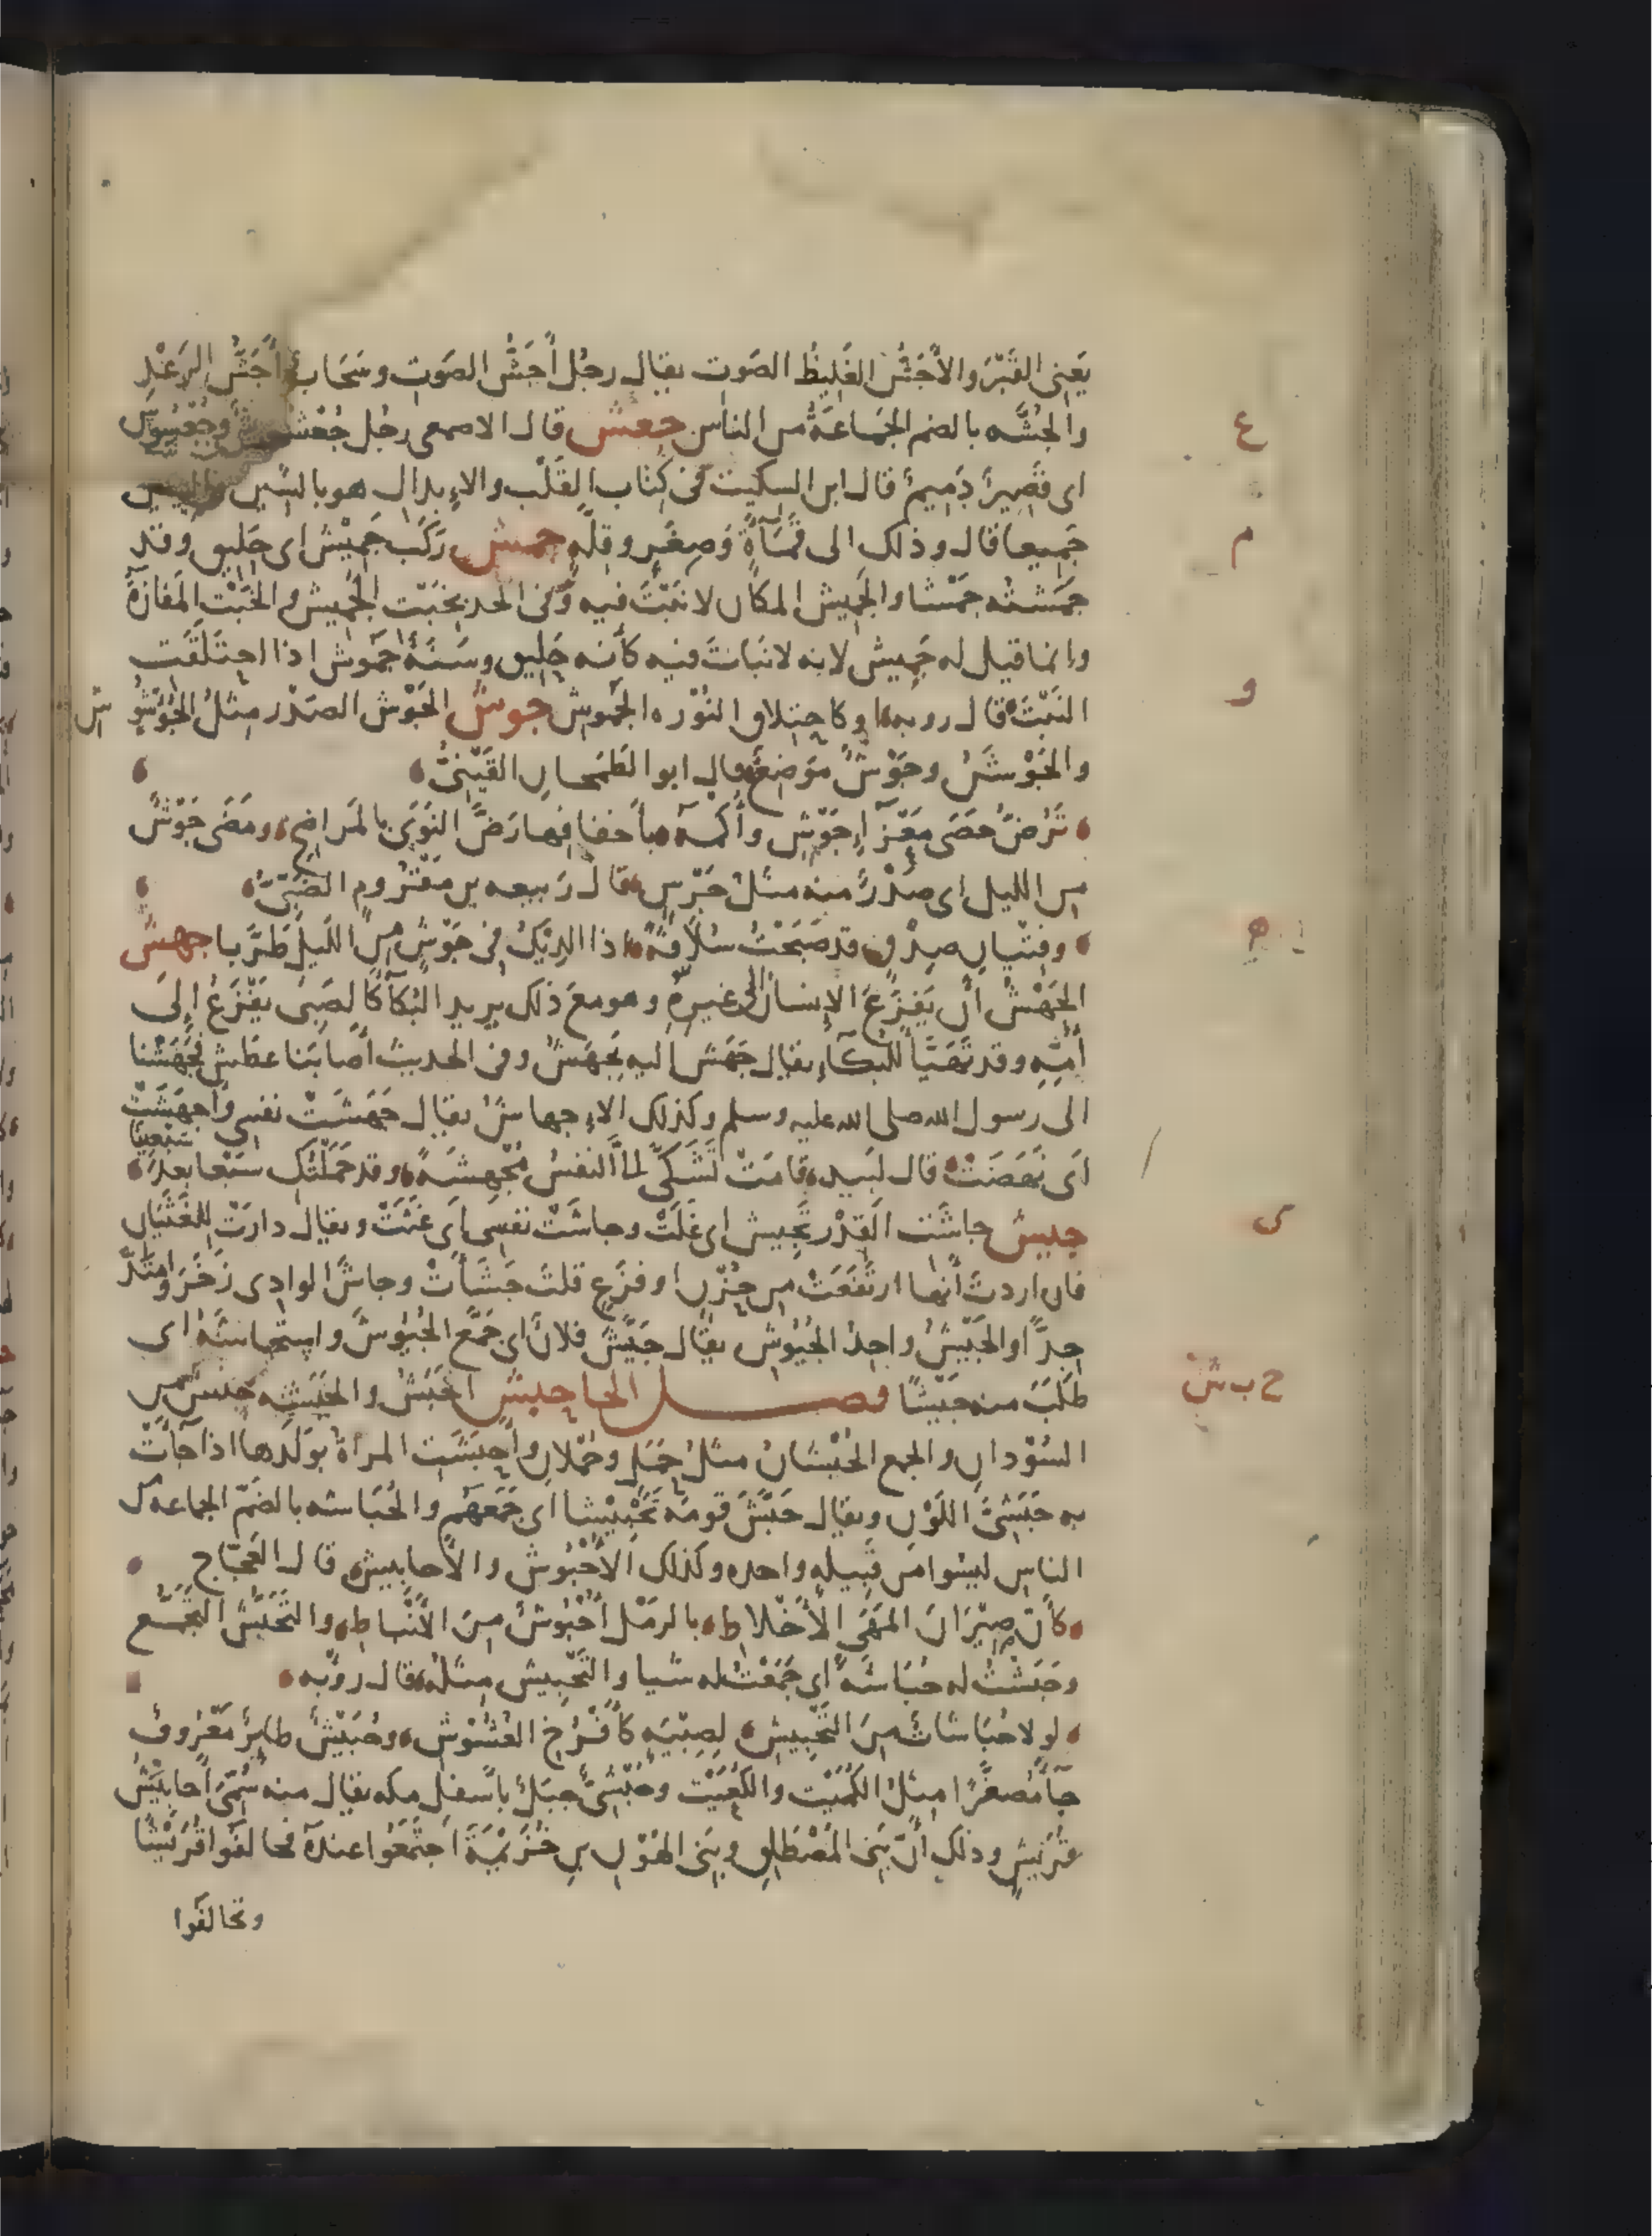 يَعنِى القَبْرَ والأَجَشُّ الغَلِيظُ الصَوت يقال رجُل أَجَشُّ الصَوتِ وسَحَابٌ أَجَشُّ الرَعْدِ
والجُشَّه بالضم الجَمَاعَةُ من الناس جعش قال الاصمعى رجُل جُعْشُوشٌ وجُعْسُوسٌ
اى قَصِيرٌ دَمِيمٌ قال ابن السكيت فى كِتَاب القَلْب والإبدال هو بالشين والسين
ع
جَمِيعا قال وذلك الى قَمْأَةٍ وَصِغَرٍ وقِلَّهٍ جمش رَكَبٌ جَمِيْشٌ اى حَلِيق وقد
م
جمَشتُه جَمْشا والجَمِيش المكان لا نَبْتَ فيه وفى الحديث بخَبْت الجَمِيش والخَبْت المفَازَةُ
وانما قيل له جَمِيش لانه لا نَبَاتَ فيه كأنه حَلِيق وسَنَةٌ جَمُوش اذا احتَلَقَت
النَبْتَ قال روبه او كاحتِلاق النُوْرَه الجَمُوش جوش الجَوْش الصَدْر مِثلُ الجُؤشُو ش
و
والجَوْشَنُ وجَوْشٌ مَوْضِعٌ قال ابو الطَمَحان القَيْنِىُّ
تَرُضُّ حَصَى مَعْزَآءِ جَوْشٍ وأُكْمَه بأَخفافِها رَضَّ النَوَى بالمَراضِحِ ومَضَى جَوْشٌ
من الليل اى صَدْرٌ منه مثلُ جَرْسٍ قال رَبيعه بن مَقْرُوم الضَبِّىُّ
وفِتْيانِ صِدْقٍ قد صَبَحْتُ سُلَافَةً اذا الدِيْكُ فى جَوْشٍ مِن اللَيلِ طَرَّبا جهش
ه
الجَهْشُ أن يَفزَعَ الإنسانُ الى غيرِهِ وهو معَ ذلك يريد البُكآءَ كالصَبىِّ يَفْزَعُ إلى
أُمِّهِ وقد تَهَيَّأَ للبُكآءِ يقال جَهَشَ اليه يَجْهَشُ وفى الحديث أصابَنا عطش فجَهَشْنا
الى رسول الله صلى الله عليه وسلم وكذلك الإجهاشُ يقال جَهَشَتْ نفسى وأَجهَشَتْ
اى نَهَضَتْ قال لبَيد قامَتْ تَشَكَّى لىَّ النفسُ مُجْهِشَةً وقد حَمَلْتُكِ سَبْعا بعدَ سَبْعِينا
جيش جاشَت القِدْر تَجِيش اى غَلَتْ وجاشَتْ نفسِى اى غَثَتْ ويقال دارَتْ لِلغَثَيَان
ى
فان اردتَ أنها ارتَفَعَتْ مِن حُزْنٍ او فزَعٍ قلتَ جَشَأَتْ وجاشَ الوادِى زَخَرَ وامتَدَّ
جِدًّا والجَيْشُ واحِدُ الجُيُوشِ يقال جَيَّشَ فلانٌ اى جَمَّع الجُيُوشَ واستَجاشَهُ اى
طَلَبَ منه جَيْشًا فصــل الحا حبش الحَبَشُ والحَبَشه جنسٌ مِن
ح ب ش
السُوْدانِ والجمع الحُبْشَانُ مثلُ حَمَلٍ وحُمْلانٍ وأَحبَشَت المرأةُ بوَلَدها اذا جآءَتْ
به حَبَشِىَّ اللَوْنِ ويقال حَبَّشَ قومَه تَحْبِيْشا اى جَمَعَهُم والحُبَاشه بالضمّ الجماعه ك
الناس ليسُوا من قَبِيله واحده وكذلك الأُحْبُوش والأَحابيش قال العَجّاج
كأَنَّ صِيْرَانَ المَهَى الأَخْلاطِ بالرمْل أُحْبُوشٌ مِنَ الأَنْباطِ والتَحَبُّشُ التَجَمُّع
وحَبَشْتُ له حُبَاشَةً اى جَمَعْتُ له شيا والتَحْبِيش مِثلُه قال روْبه
لولا حُبَاشَاتٌ مِنَ التَحْبِيشِ لِصِبْيَةٍ كأَفْرُخِ العُشُوْشِ وحُبَيْشٌ طايرٌ مَعْرُوفٌ
جآءَ مُصغَّرًا مِثلُ الكُمَيْت والكُعَيْت وحُبْشِىٌّ جبَلٌ بأسفل مكه يقال منه سُمِّىَ أَحابِيْشُ
قُرَيْشٍ وذلك أنّ بَنِى المُصْطَلِقِ وبَنِى الهَوْنِ بنِ خُزَيْمَةَ اجتَمَعُوا عندَهُ فحالفُوا قُرَيْشًا
وتحالفُوا